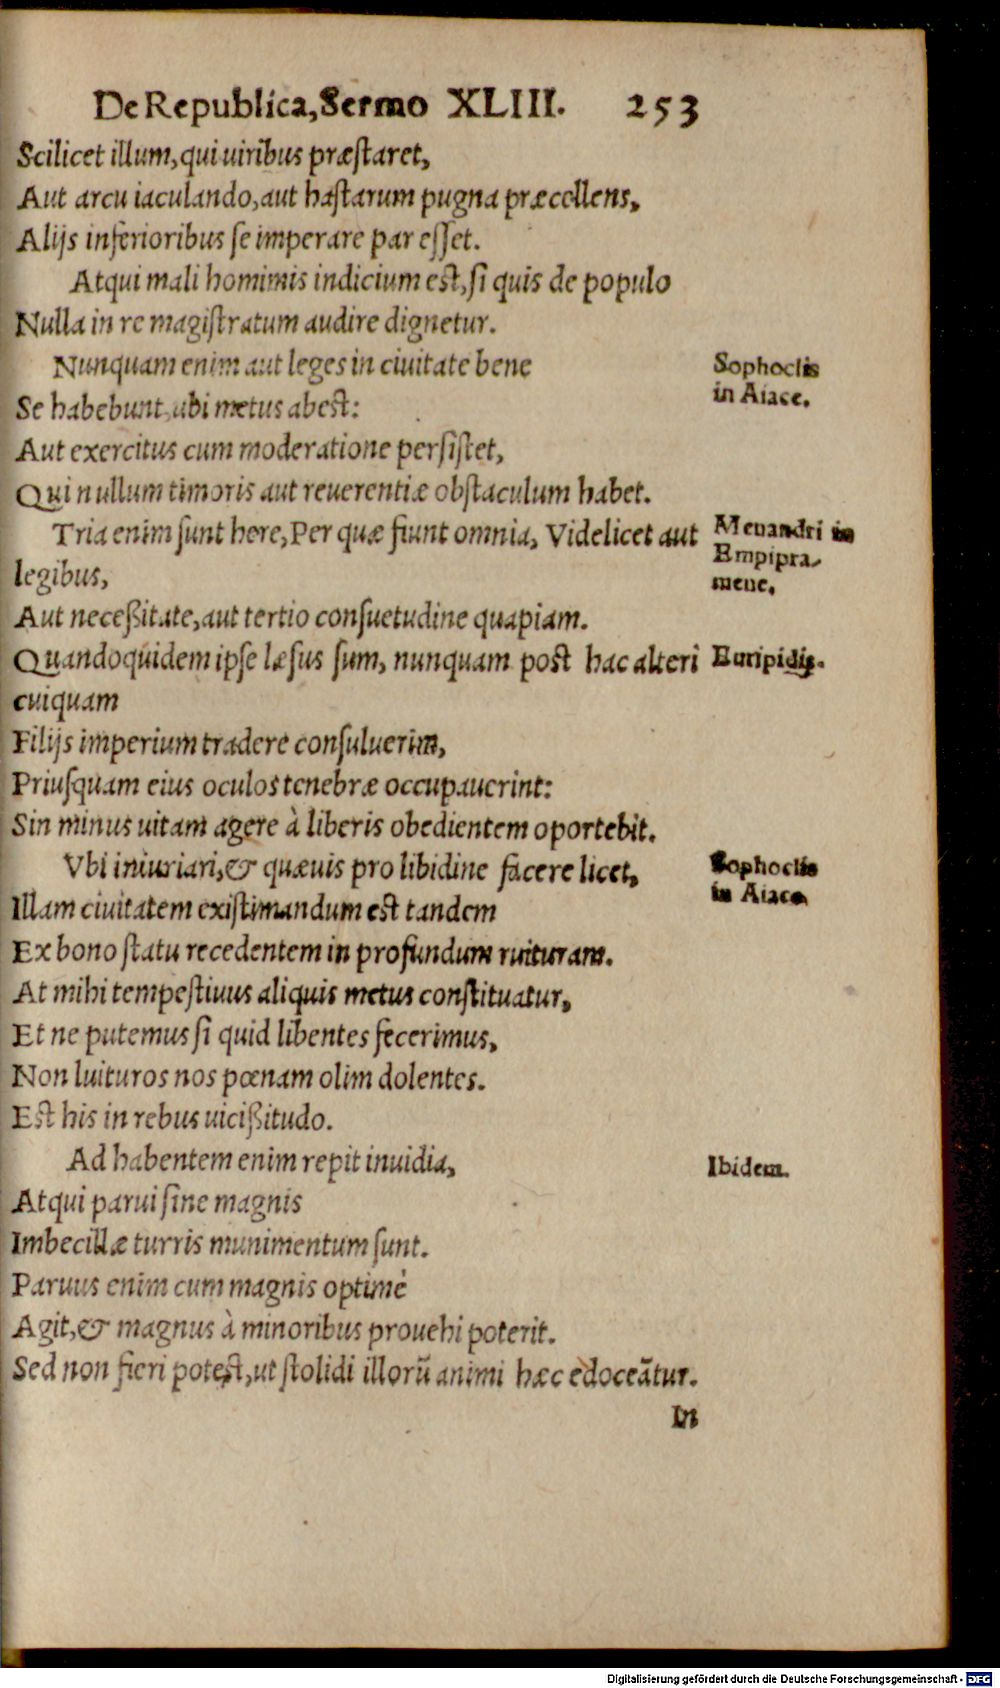 De Republica, Sermo XLIII. 253
Scilicet illum, qui uiribus præstaret,
Aut arcu iaculando, aut hastarum pugna præcellens,
Alijs inferioribus se imperare par esset.
Atqui mali hominis indicium est, si quis de populo
Nulla in re magistratum audire dignetur.
Nunquam enim aut leges in ciuitate bene
Sophoclis
in Aiace.
Se habebunt, ubi metus abest:
Aut exercitus cum moderatione persistet,
Qui nullum timoris aut reuerentiæ obstaculum habet.
Tria enim sunt here, Per quæ fiunt omnia, Videlicet aut
Menandri in
Empipra-
mene.
legibus,
Aut neceßitate, aut tertio consuetudine quapiam.
Quandoquidem ipse læsus sum, nunquam post hac alteri
Euripidis.
cuiquam
Filijs imperium tradere consuluerim,
Priusquam eius oculos tenebræ occupauerint:
Sin minus uitam agere à liberis obedientem oportebit.
Vbi iniuriari, & quæuis pro libidine facere licet,
Sophoclis
in Aiace.
Illam ciuitatem existimandum est tandem
Ex bono statu recedentem in profundum ruituram.
At mihi tempestiuus aliquis metus constituatur,
Et ne putemus si quid libentes fecerimus,
Non luituros nos pœnam olim dolentes.
Est his in rebus uicißitudo.
Ad habentem enim repit inuidia,
Ibidem.
Atqui parui sine magnis
Imbecillæ turris munimentum sunt.
Paruus enim cum magnis optimè
Agit, & magnus à minoribus prouehi poterit.
Sed non fieri potest, ut stolidi illorũ animi hæc edoceãtur.
In
Digitalisierung gefördert durch die Deutsche Forschungsgemeinschaft - DFG